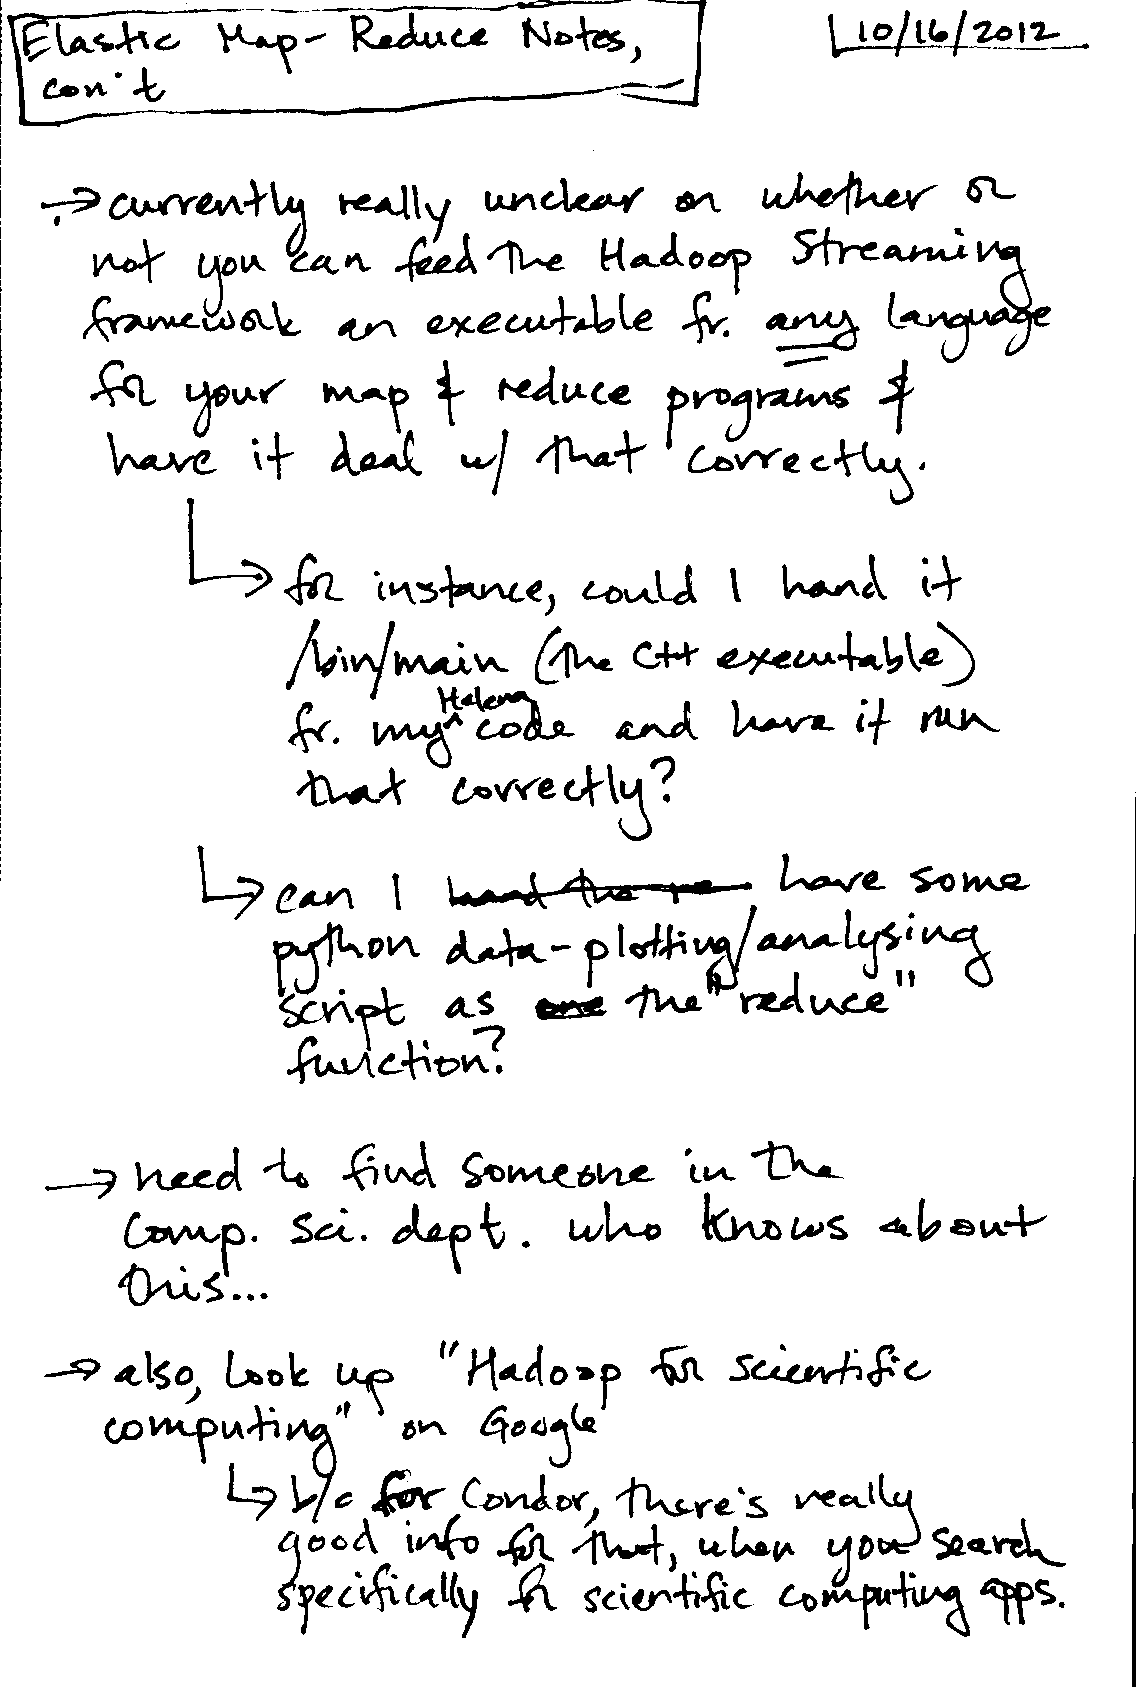 Elastic Map-Reduce Notes,
con't
10/16/2012
→ currently really unclear on whether or
not you can feed the Hadoop Streaming
framework an executable fr. any language
for your map & reduce programs &
have it deal w/ that correctly.
↳ for instance, could I hand it
/bin/main (the C++ executable)
Helena
fr. my ^ code and have it run
that correctly?
↳ can I hand the re have some
python data-plotting/analysing
script as one the "reduce"
function?
→ need to find someone in the
Comp. Sci. dept. who knows about
this...
→ also, look up "Hadoop for scientific
computing" on Google
↳ b/c for Condor, there's really
good info for that, when you search
specifically for scientific computing apps.